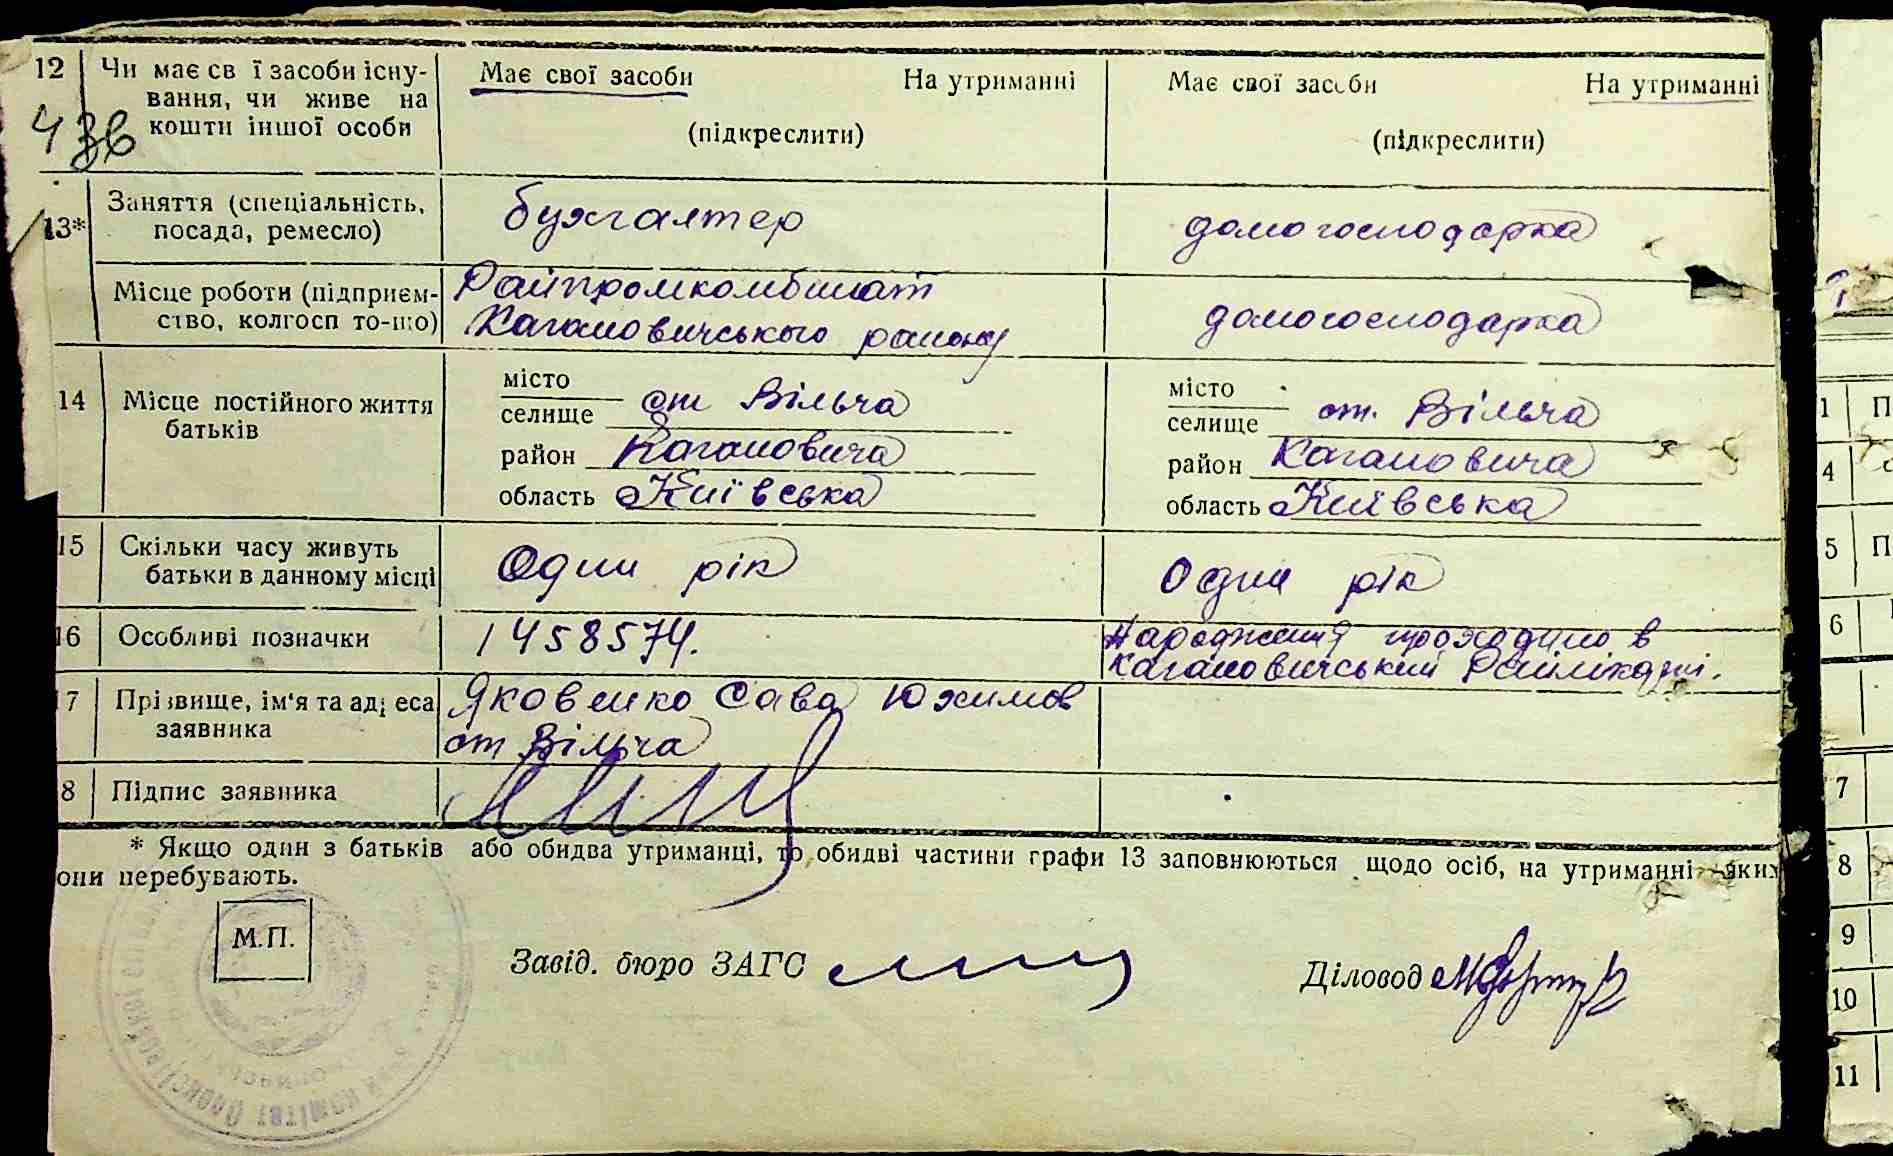 12 Чи має св ї засоби існу- Має свої засоби На утриманні Має свої засоби На утриманні
вання, чи живе на
кошти іншої особи (підкреслити) (підкреслити)
43в
13* Заняття (спеціальність, бухгалтер домогосподарка
посада, ремесло)
Місце роботи (підприєм- Райпромкомбінат домогосподарка
ство, колгосп то-що) Кагановичського району
14 Місце постійного життя місто ст Вільча місто ст. Вільча
батьків селище селище
район Кагановича район Кагановича
область Київська область Київська
15 Скільки часу живуть Один рік Один рік
батьки в данному місці
16 Особливі позначки 1458574. Народження проходило в
Кагановичський Райлікарні.
7 Прізвище, ім'я та адреса Яковенко Сава Юхимов
заявника ст Вільча
8 Підпис заявника
* Якщо один з батьків або обидва утриманці, то обидві частини графи 13 заповнюються щодо осіб, на утриманні яких
они перебувають.
М.П.
Завід. бюро ЗАГС Діловод
1 П
4
5 П
6
7
8
9
10
11